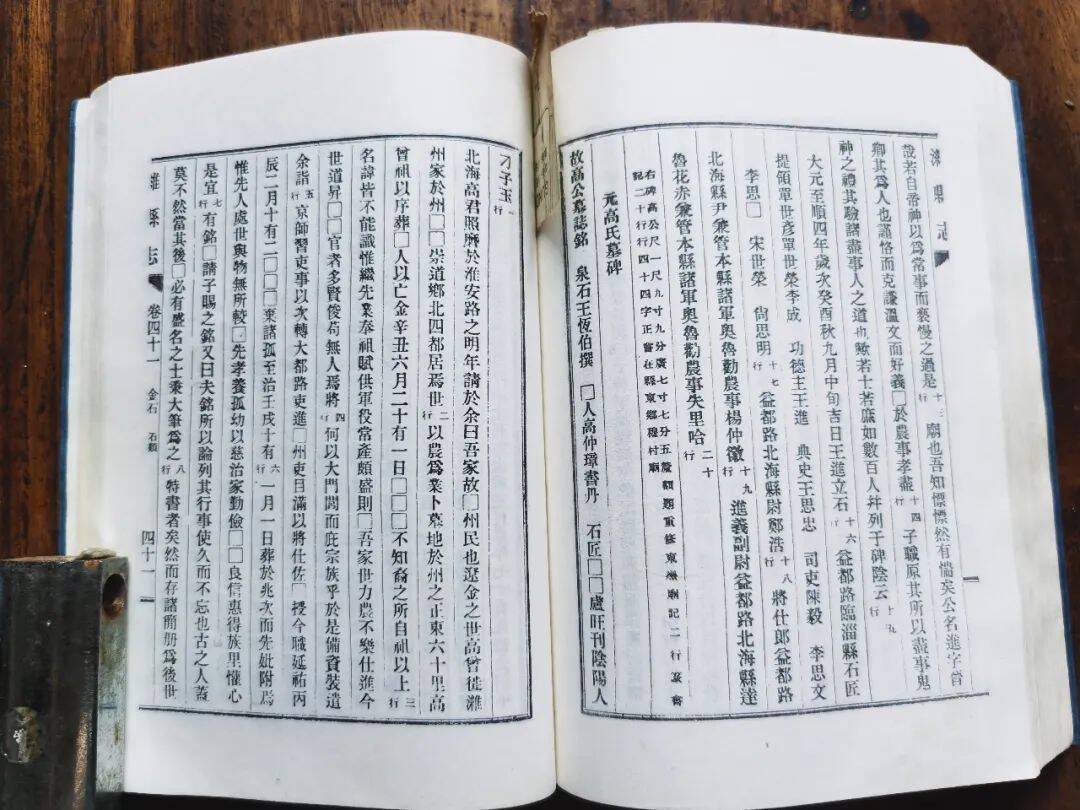 濰縣志
哉若自常神以為常事而褻慢之過是行十三廟也吾知慄慄然有惴矣公名進字管
卿其為人也謹恪而克謙溫文而好義□於農事孝盡行十四子職原其所以盡事鬼
神之禮其驗諸盡事人之道也歟若士若庶如數百人并列于碑陰云行十五
大元至順四年歲次癸酉秋九月中旬吉日王進立石行十六益都路臨淄縣石匠
提領單世彥單世榮李成 功德主王進 典史王思忠 司吏陳毅 李思文
李思□ 宋世榮 尙思明行十七益都路北海縣尉鄭浩行十八將仕郎益都路
北海縣尹兼管本縣諸軍奧魯勸農事楊仲徽行十九進義副尉益都路北海縣達
魯花赤兼管本縣諸軍奧魯勸農事失里哈行二十
右碑高公尺一尺九寸九分廣七寸七分五釐額題重修東嶽廟記二行篆書
記二十行行四十四字正書在縣東鄉穆村廟
元高氏墓碑
故高公墓誌銘 泉石王恆伯撰 □人高仲璋書丹 石匠□□盧旺刊陰陽人
刁子玉行一
北海高君照磨於淮安路之明年請於余曰吾家故□州民也遼金之世高曾徙濰
州家於州□□崇道鄉北四都居焉世行二以農爲業卜墓地於州之正東六十里高
曾祖以序葬□人以亡金辛丑六月二十有一日□□□不知裔之所自祖以上行三
名諱皆不能識惟繼先業奉祖賦供軍役常產頗盛則□吾家世力農不樂仕進今
世道昇□□官者多賢俊苟無人焉將行四何以大門閭而庇宗族乎於是備資裝遣
余詣行五京師習吏事以次轉大都路吏進□州吏目滿以將仕佐□授今職延祐丙
辰二月十有二□□□棄諸孤至治壬戌十有行六一月一日葬於兆次而先妣附焉
惟先人處世與物無所較□先孝養孤幼以慈治家勤儉□□良信惠得族里懽心
是宜行七有銘□請子賜之銘又曰夫銘所以論列其行事使久而不忘也古之人蓋
莫不然當其後□必有盛名之士秉大筆爲之行八特書者矣然而存諸簡册爲後世
濰縣志 卷四十一 金石 石類 四十一